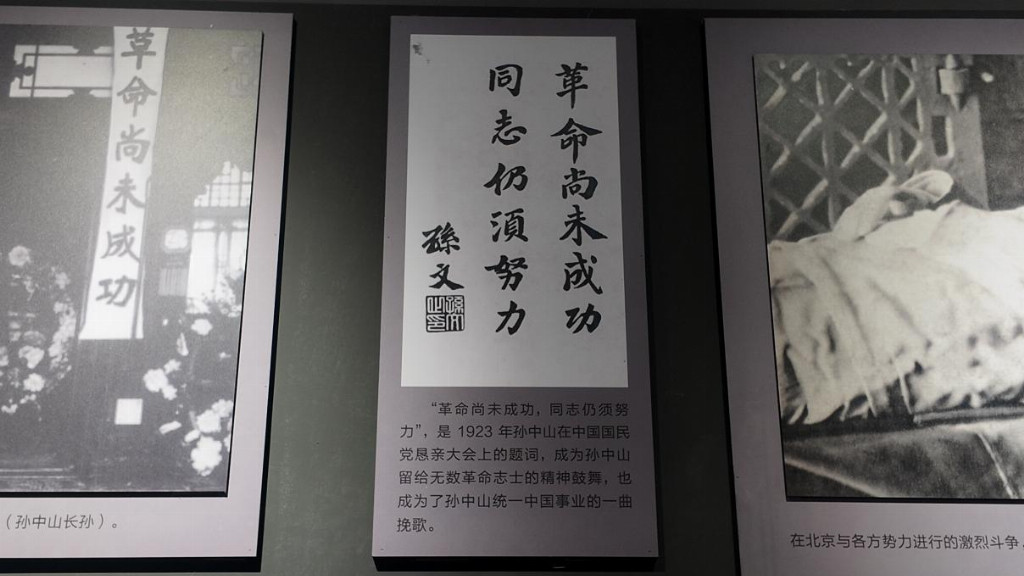 革命尚未成功
（孙中山长孙）。
革命尚未成功
同志仍須努力
孫文
孫文之印
“革命尚未成功，同志仍须努
力”，是 1923 年孙中山在中国国民
党恳亲大会上的题词，成为孙中山
留给无数革命志士的精神鼓舞，也
成为了孙中山统一中国事业的一曲
挽歌。
在北京与各方势力进行的激烈斗争，